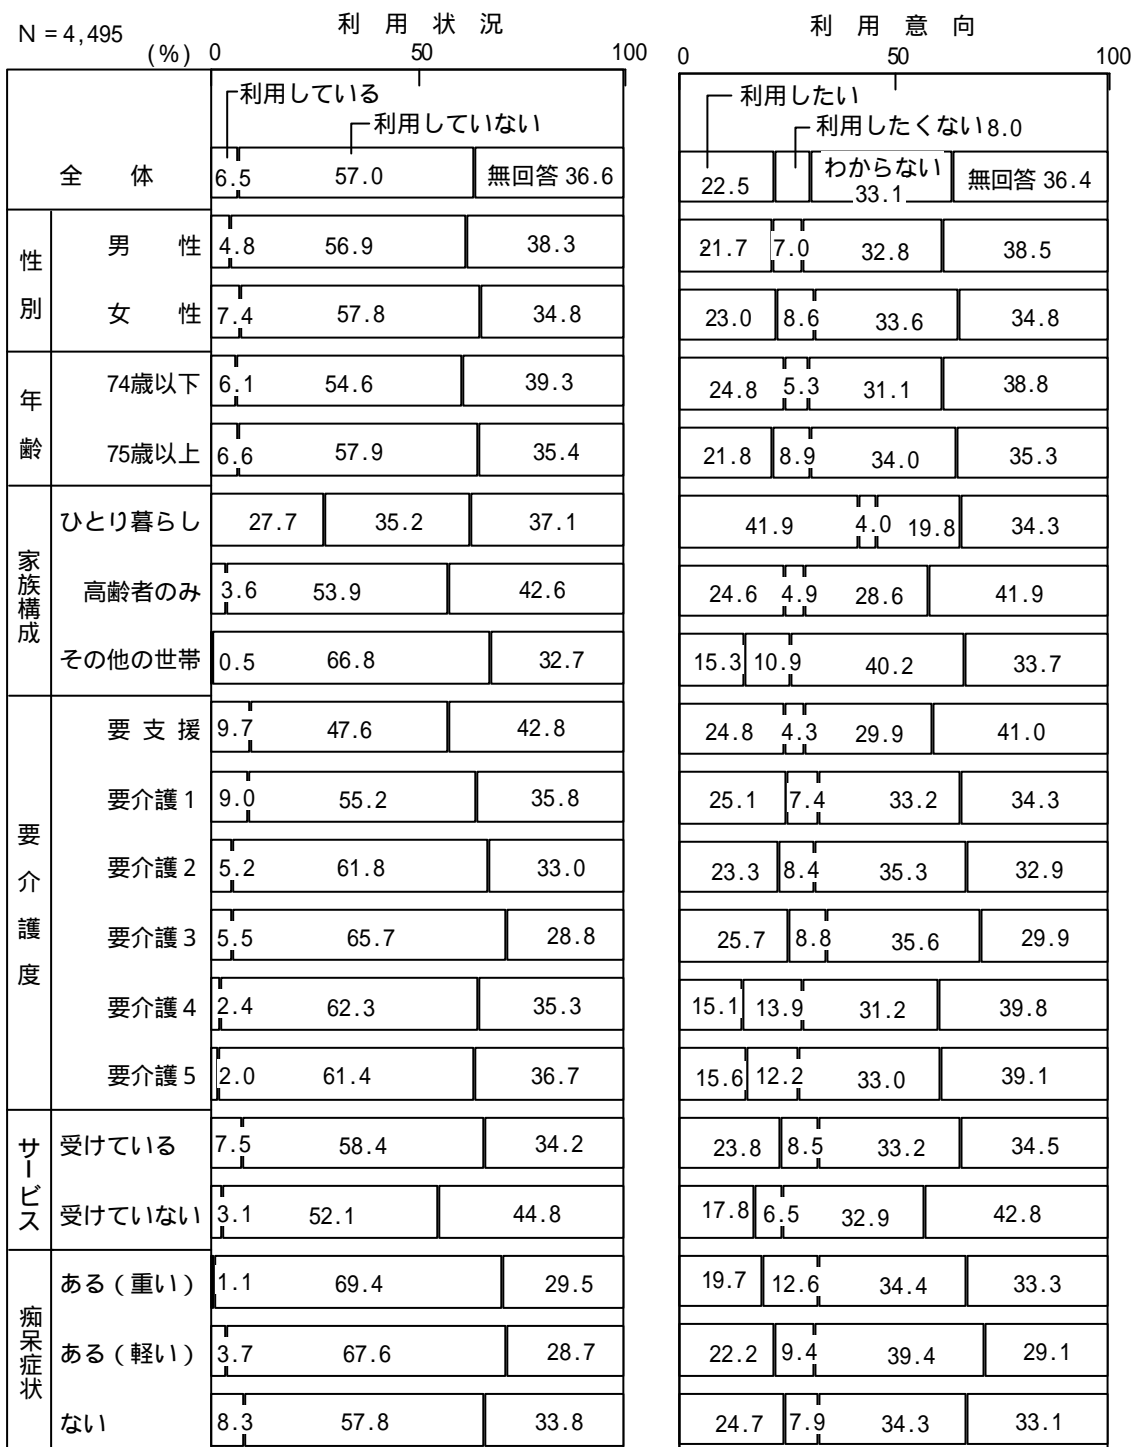 N = 4,495
(%)
利用状況
0 50 100
利用意向
0 50 100
利用している
利用していない
利用したい
利用したくない8.0
全体 6.5 57.0 無回答 36.6 22.5 わからない 33.1 無回答 36.4
性別
男性 4.8 56.9 38.3 21.7 7.0 32.8 38.5
女性 7.4 57.8 34.8 23.0 8.6 33.6 34.8
年齢
74歳以下 6.1 54.6 39.3 24.8 5.3 31.1 38.8
75歳以上 6.6 57.9 35.4 21.8 8.9 34.0 35.3
家族構成
ひとり暮らし 27.7 35.2 37.1 41.9 4.0 19.8 34.3
高齢者のみ 3.6 53.9 42.6 24.6 4.9 28.6 41.9
その他の世帯 0.5 66.8 32.7 15.3 10.9 40.2 33.7
要介護度
要支援 9.7 47.6 42.8 24.8 4.3 29.9 41.0
要介護1 9.0 55.2 35.8 25.1 7.4 33.2 34.3
要介護2 5.2 61.8 33.0 23.3 8.4 35.3 32.9
要介護3 5.5 65.7 28.8 25.7 8.8 35.6 29.9
要介護4 2.4 62.3 35.3 15.1 13.9 31.2 39.8
要介護5 2.0 61.4 36.7 15.6 12.2 33.0 39.1
サービス
受けている 7.5 58.4 34.2 23.8 8.5 33.2 34.5
受けていない 3.1 52.1 44.8 17.8 6.5 32.9 42.8
痴呆症状
ある(重い) 1.1 69.4 29.5 19.7 12.6 34.4 33.3
ある(軽い) 3.7 67.6 28.7 22.2 9.4 39.4 29.1
ない 8.3 57.8 33.8 24.7 7.9 34.3 33.1